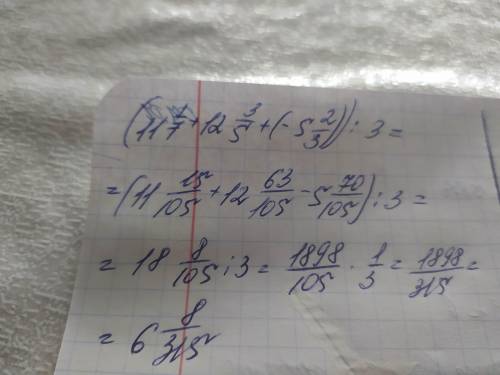 (11 1/7 + 12 3/5 + (- 5 2/3)) : 3 =
= (11 15/105 + 12 63/105 - 5 70/105) : 3 =
= 18 8/105 : 3 = 1898/105 · 1/3 = 1898/315 =
= 6 8/315